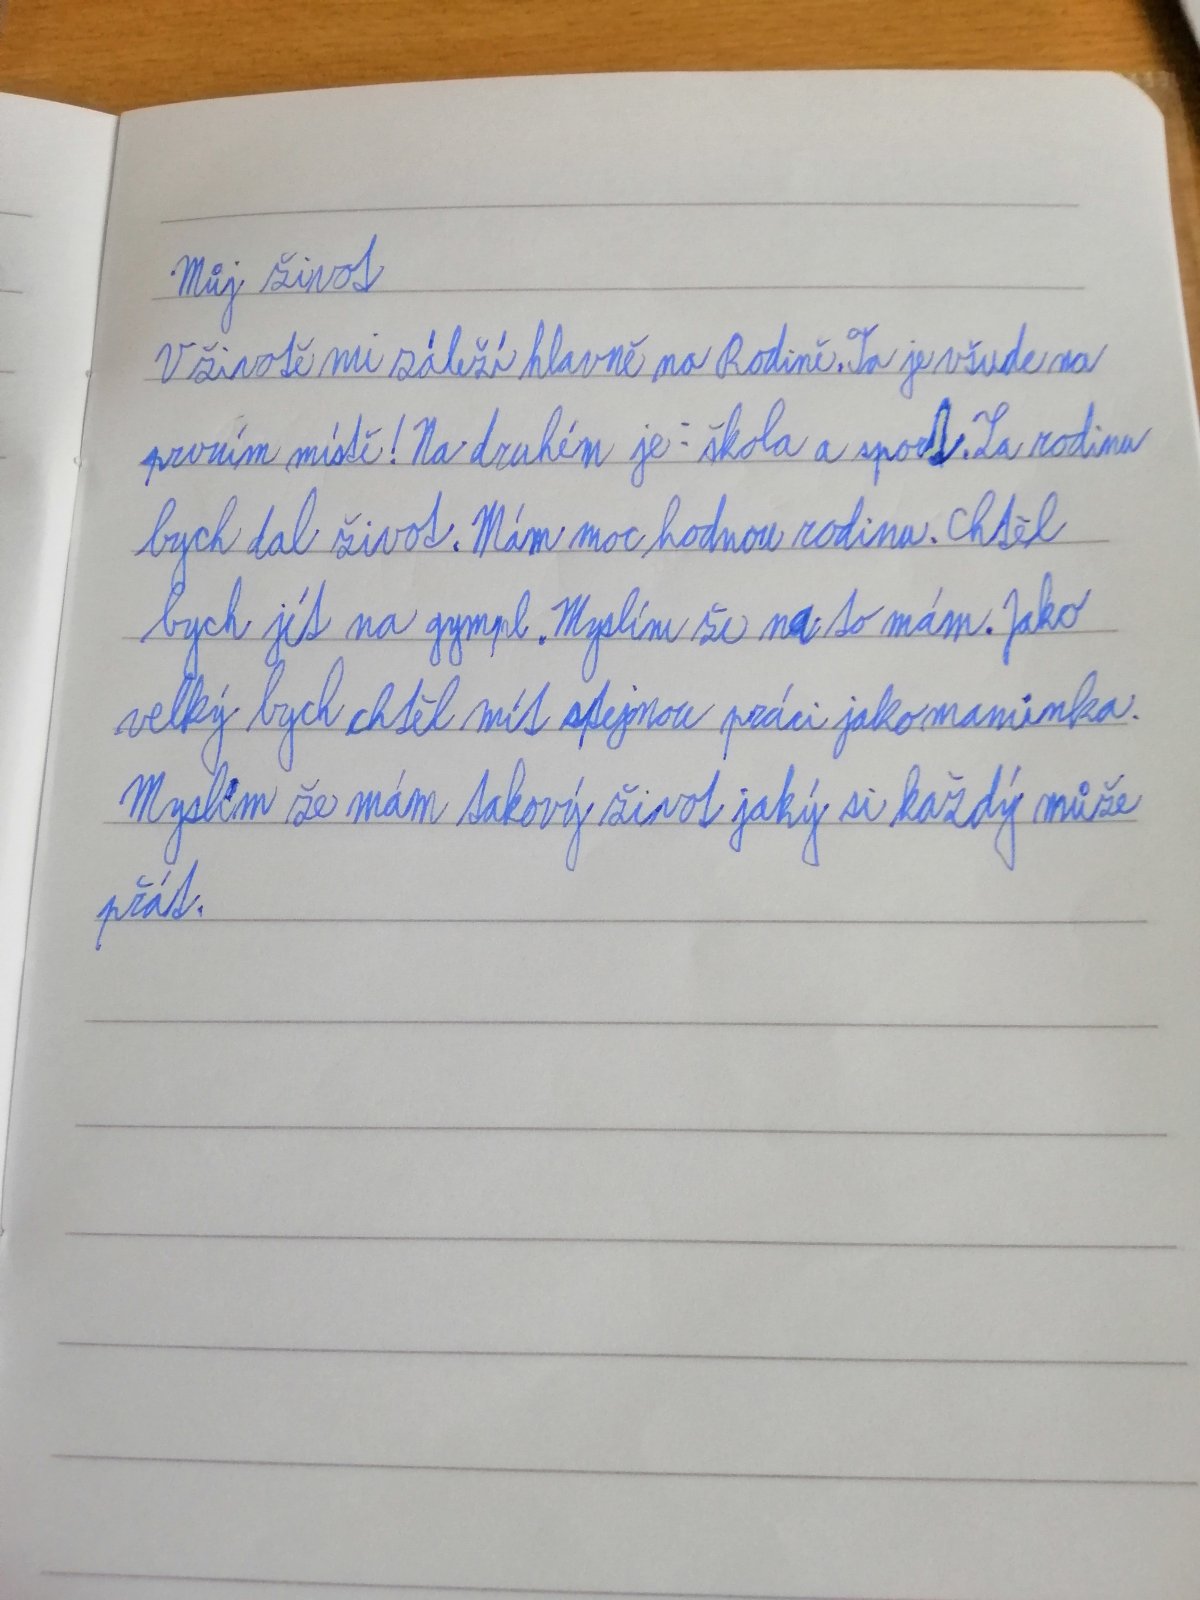 Můj život
V životě mi záleží hlavně na Rodině. Ta je všude na
prvním místě! Na druhém je: škola a sport. Za rodinu
bych dal život. Mám moc hodnou rodinu. Chtěl
bych jít na gympl. Myslím že na to mám. Jako
velký bych chtěl mít stejnou práci jako maminka.
Myslím že mám takový život jaký si každý může
přát.